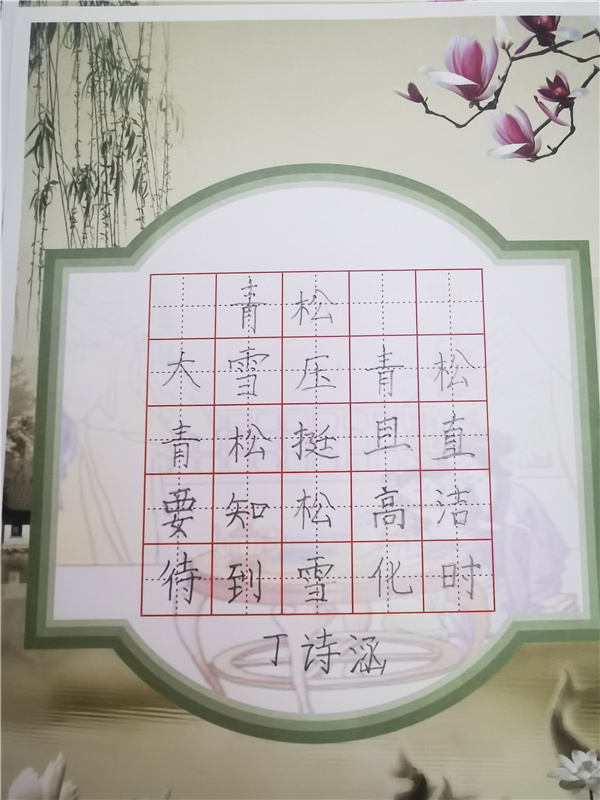 青松
大雪压青松
青松挺且直
要知松高洁
待到雪化时
丁诗涵